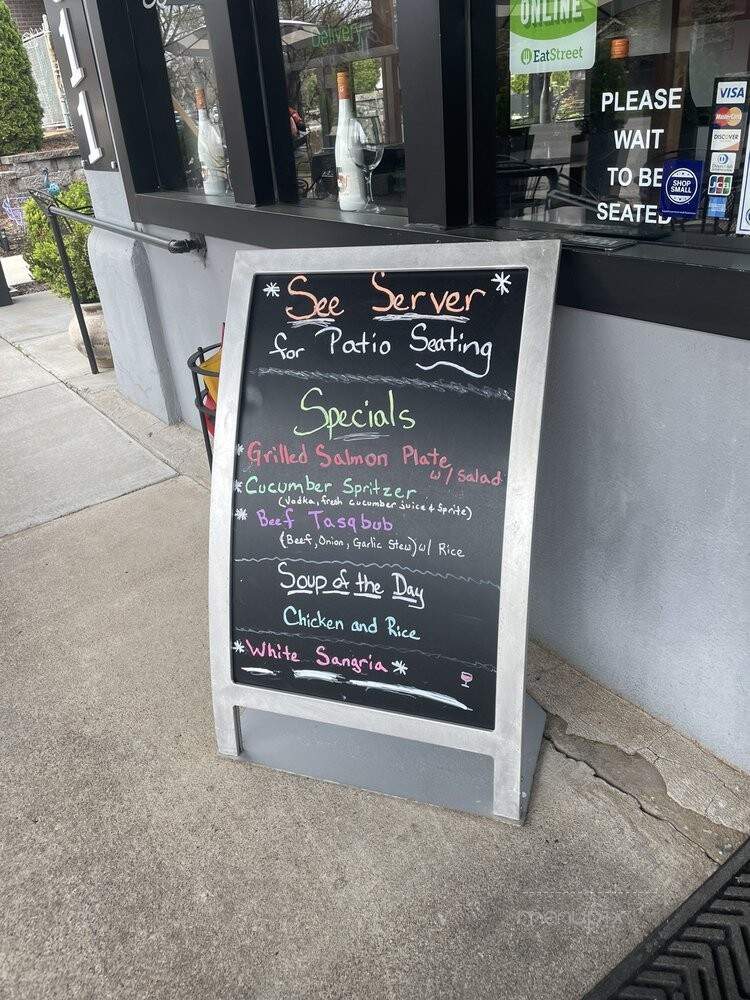 11.
Delivery
ONLINE
EatStreet
PLEASE
WAIT
TO BE
SEATED
VISA
MasterCard
DISCOVER
SHOP
SMALL
* See Server *
for Patio Seating
Specials
* Grilled Salmon Plate
w/ Salad
* Cucumber Spritzer
(Vodka, fresh cucumber juice & Sprite)
* Beef Tasqbub
(Beef, Onion, Garlic Stew) w/ Rice
Soup of the Day
Chicken and Rice
* White Sangria *
menupix